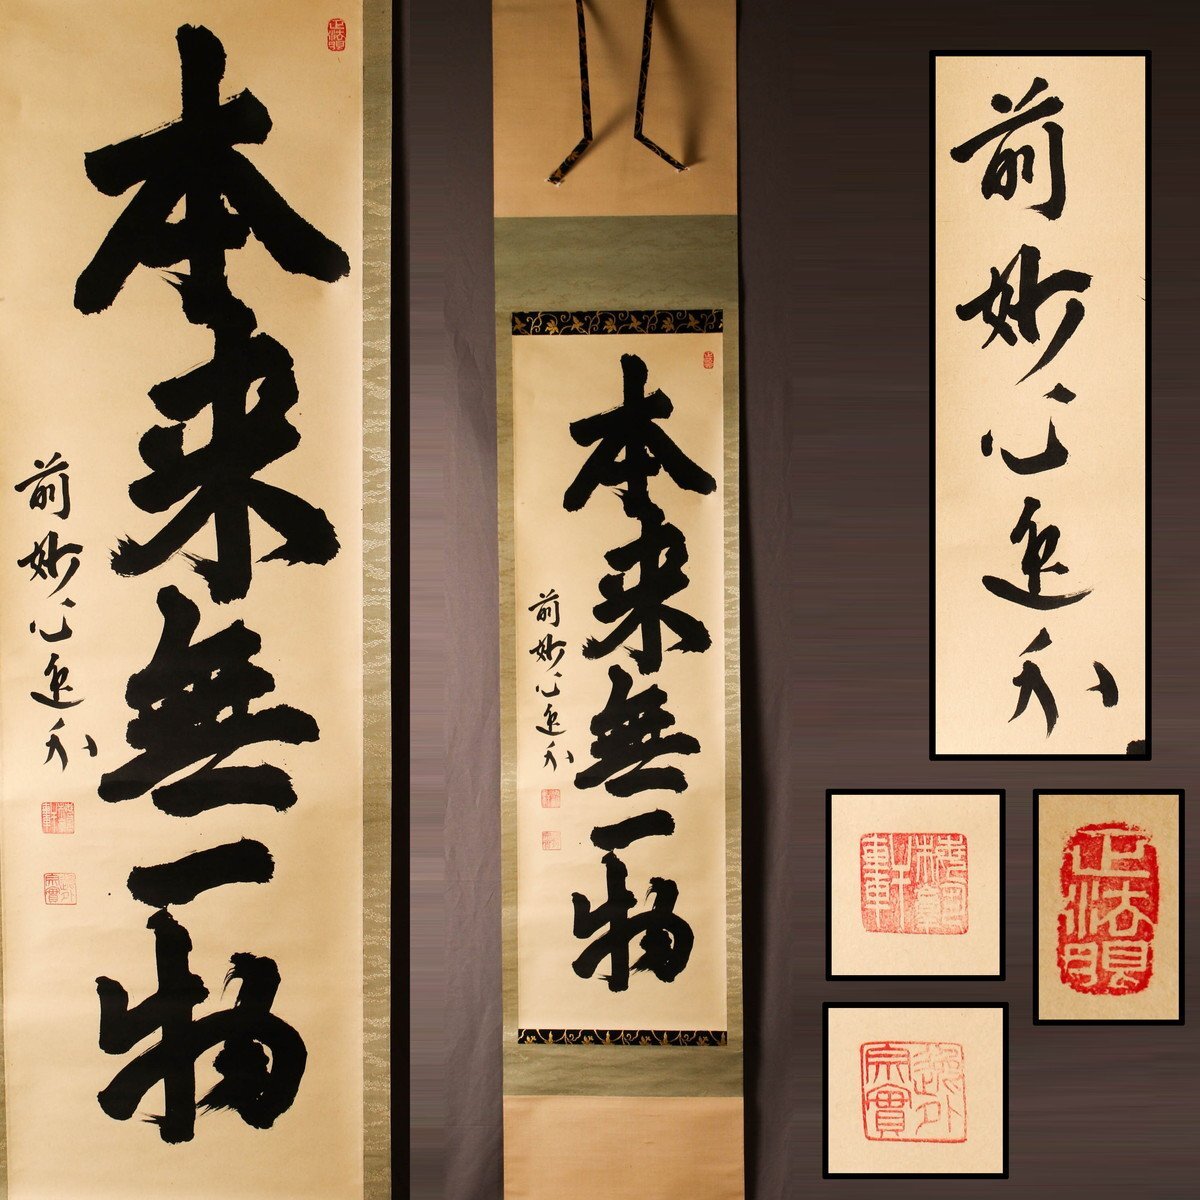 正法眼
本来無一物
前妙心逸外
正法眼
本来無一物
前妙心逸外
前妙心逸外
軒
正法眼
逸外
宗實